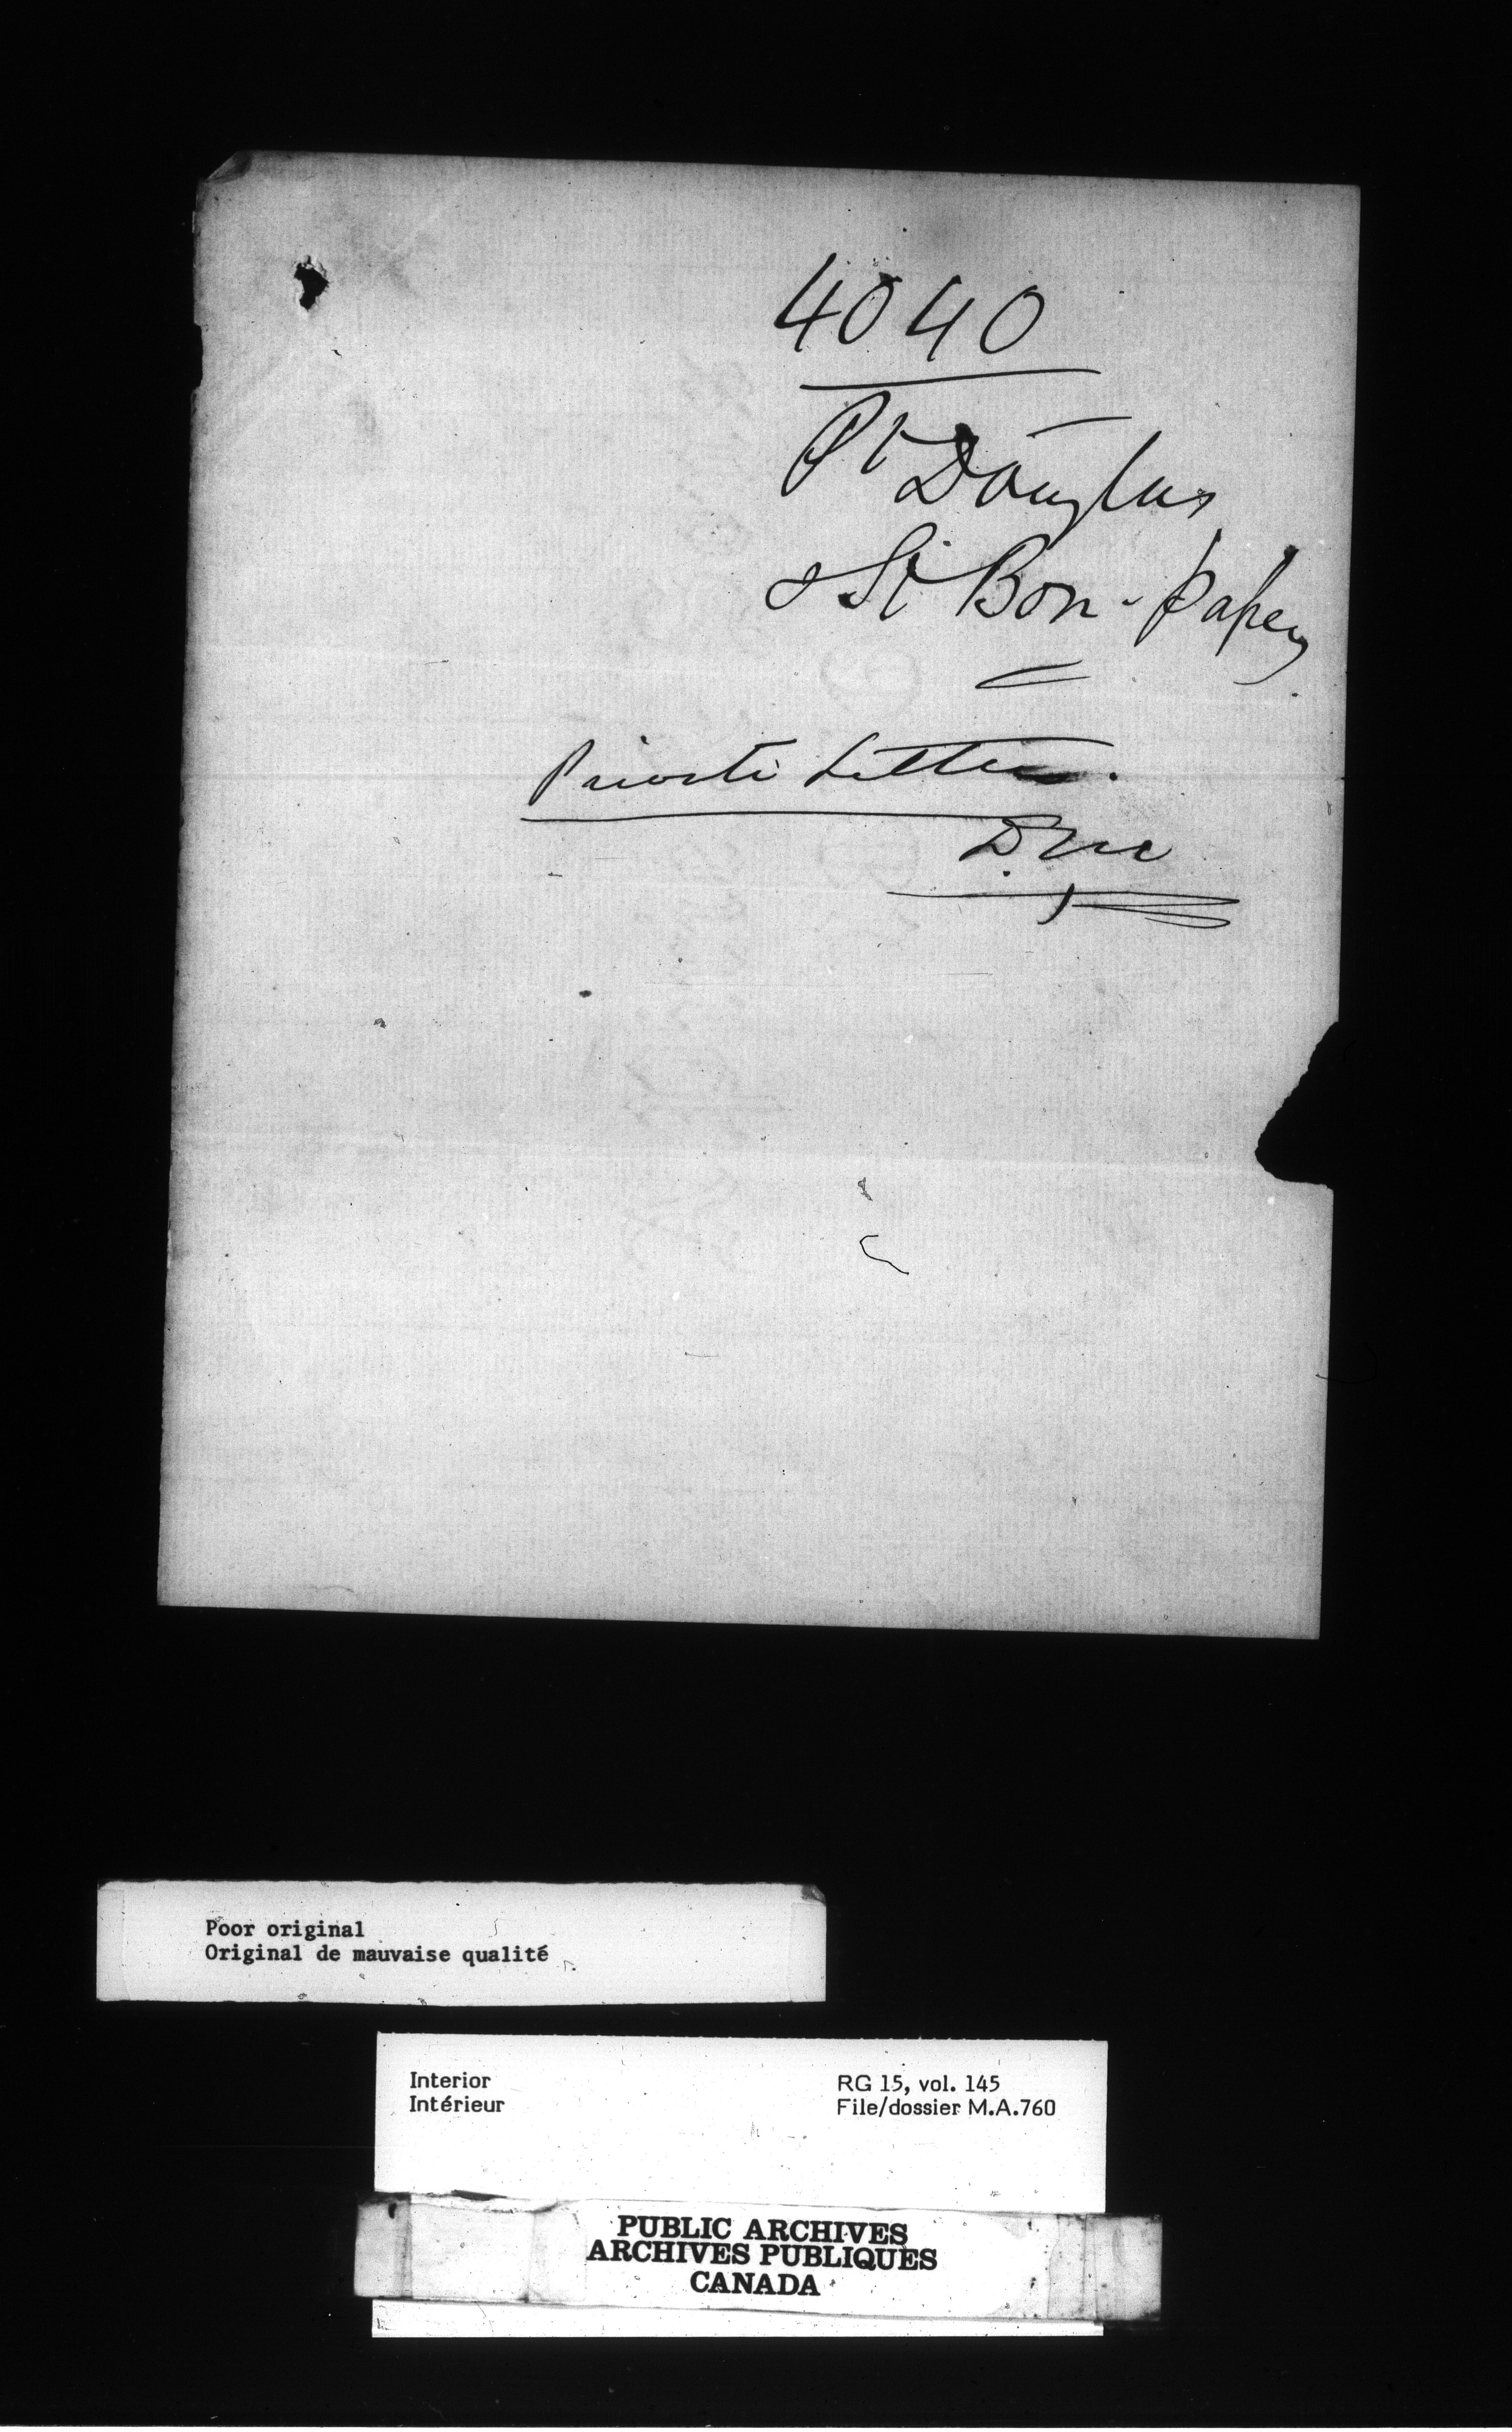 4040
Pt Douglas
& St Bon - papers
Private Letter.
Poor original
Original de mauvaise qualité
Interior
Intérieur
RG 15, vol. 145
File/dossier M.A.760
PUBLIC ARCHIVES
ARCHIVES PUBLIQUES
CANADA